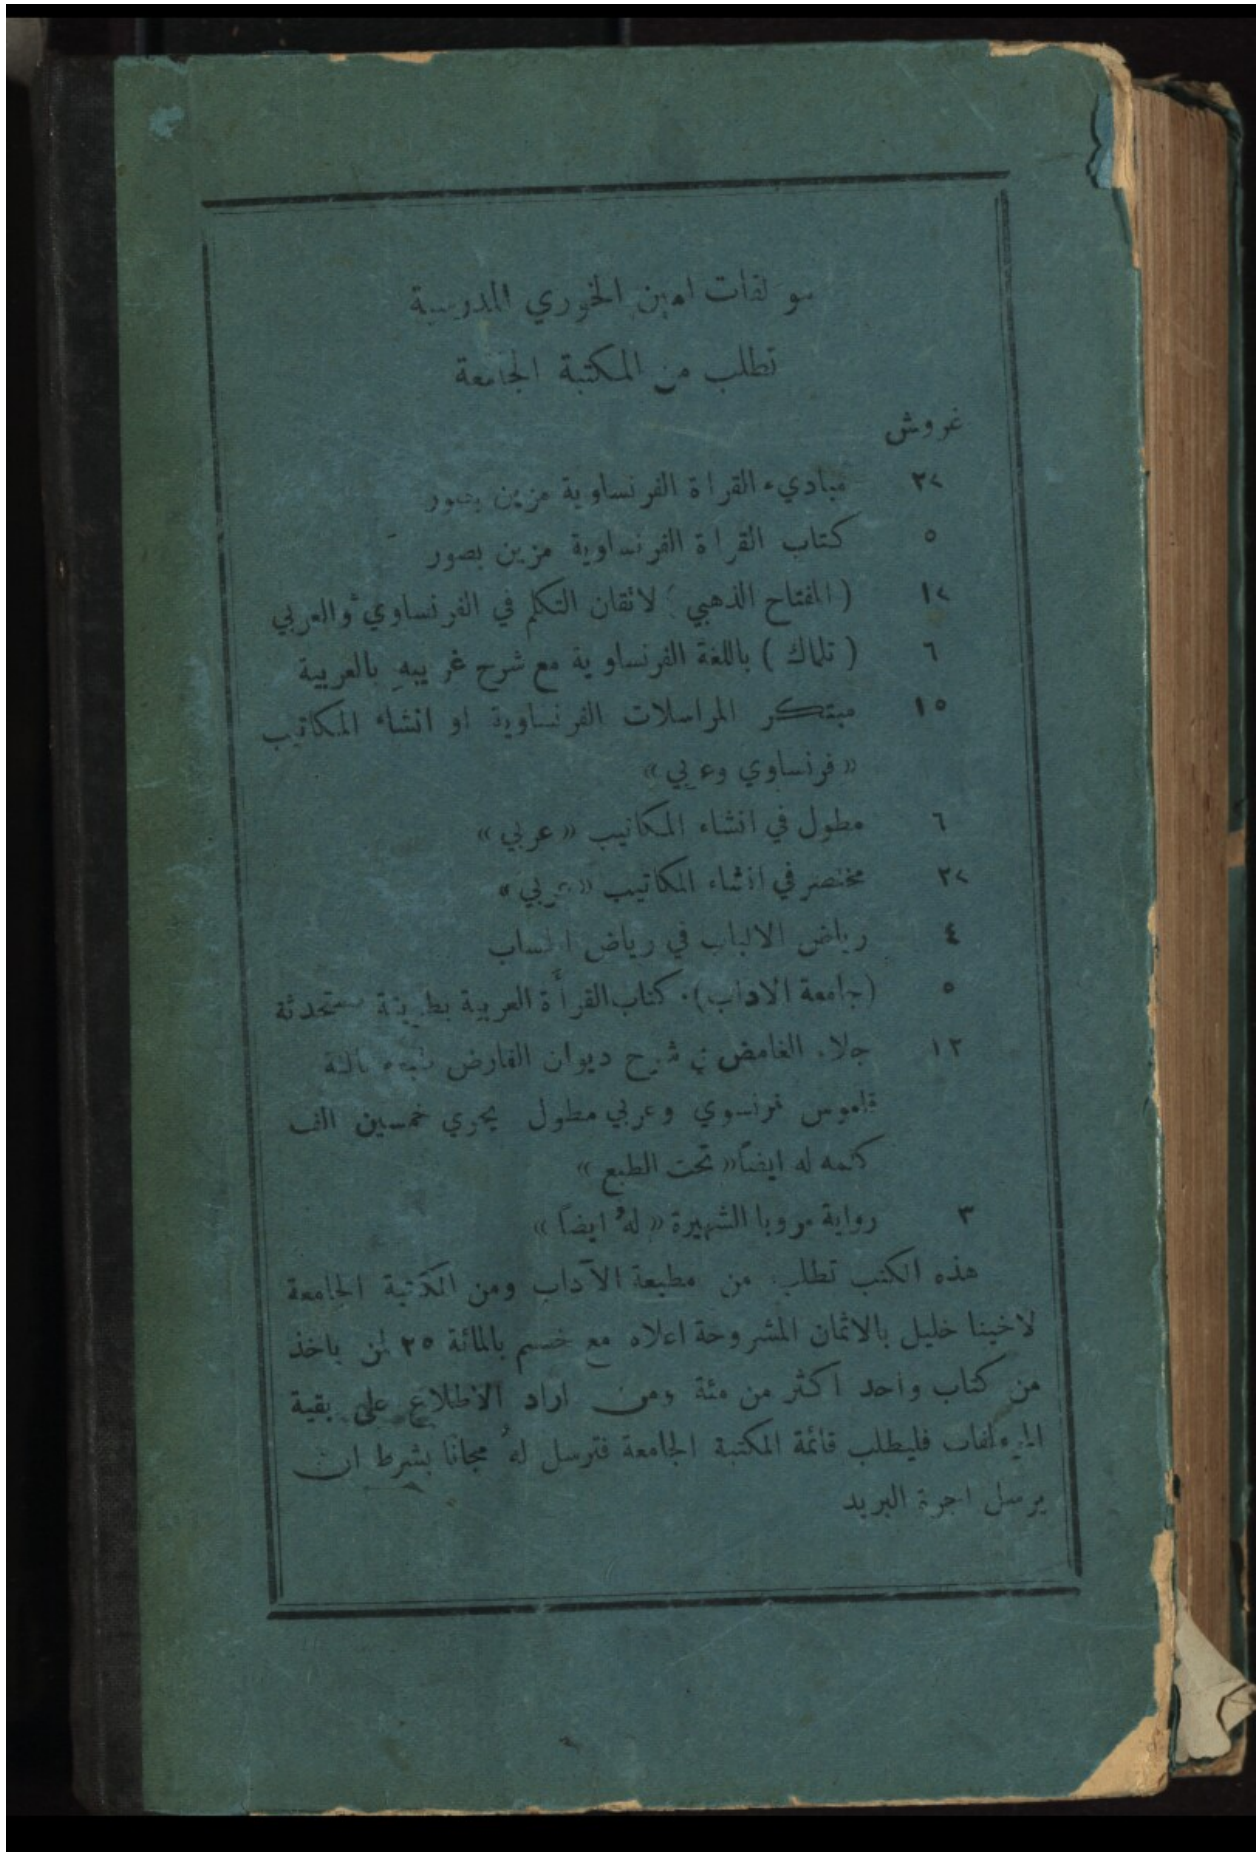 مولفات امين الخوري المدرسية
تطلب من المكتبة الجامعة
غروش
٢< مباديء القراة الفرنساوية مزين بصور
٥ كتاب القراة الفرنساوية مزين بصور
١< (المفتاح الذهبي) لاتقان التكلم في الفرنساوي والعربي
٦ (تلماك) باللغة الفرنساوية مع شرح غريبهِ بالعربية
١٥ مبتكر المراسلات الفرنساوية او انشاء المكاتيب
«فرنساوي وعربي»
٦ مطول في انشاء المكاتيب «عربي»
٢< مختصر في انشاء المكاتيب «عربي»
٤ رياض الالباب في رياض الحساب
٥ (جامعة الاداب) كتاب القرأة العربية بطريقة مستحدثة
١٢ جلاء الغامض في شرح ديوان الفارض
قاموس فرنسوي وعربي مطول يحوي خمسين الف
كلمه له ايضاً «تحت الطبع»
٣ رواية مروبا الشهيرة «لهُ ايضاً»
هذه الكتب تطلب من مطبعة الآداب ومن المكتبة الجامعة
لاخينا خليل بالاثمان المشروحة اعلاه مع خسم بالمائة ٢٥ لمن ياخذ
من كتاب واحد اكثر من مئة ومن اراد الاطلاع على بقية
المؤلفات فليطلب قائمة المكتبة الجامعة فترسل لهُ مجانا بشرط ان
يرسل اجرة البريد